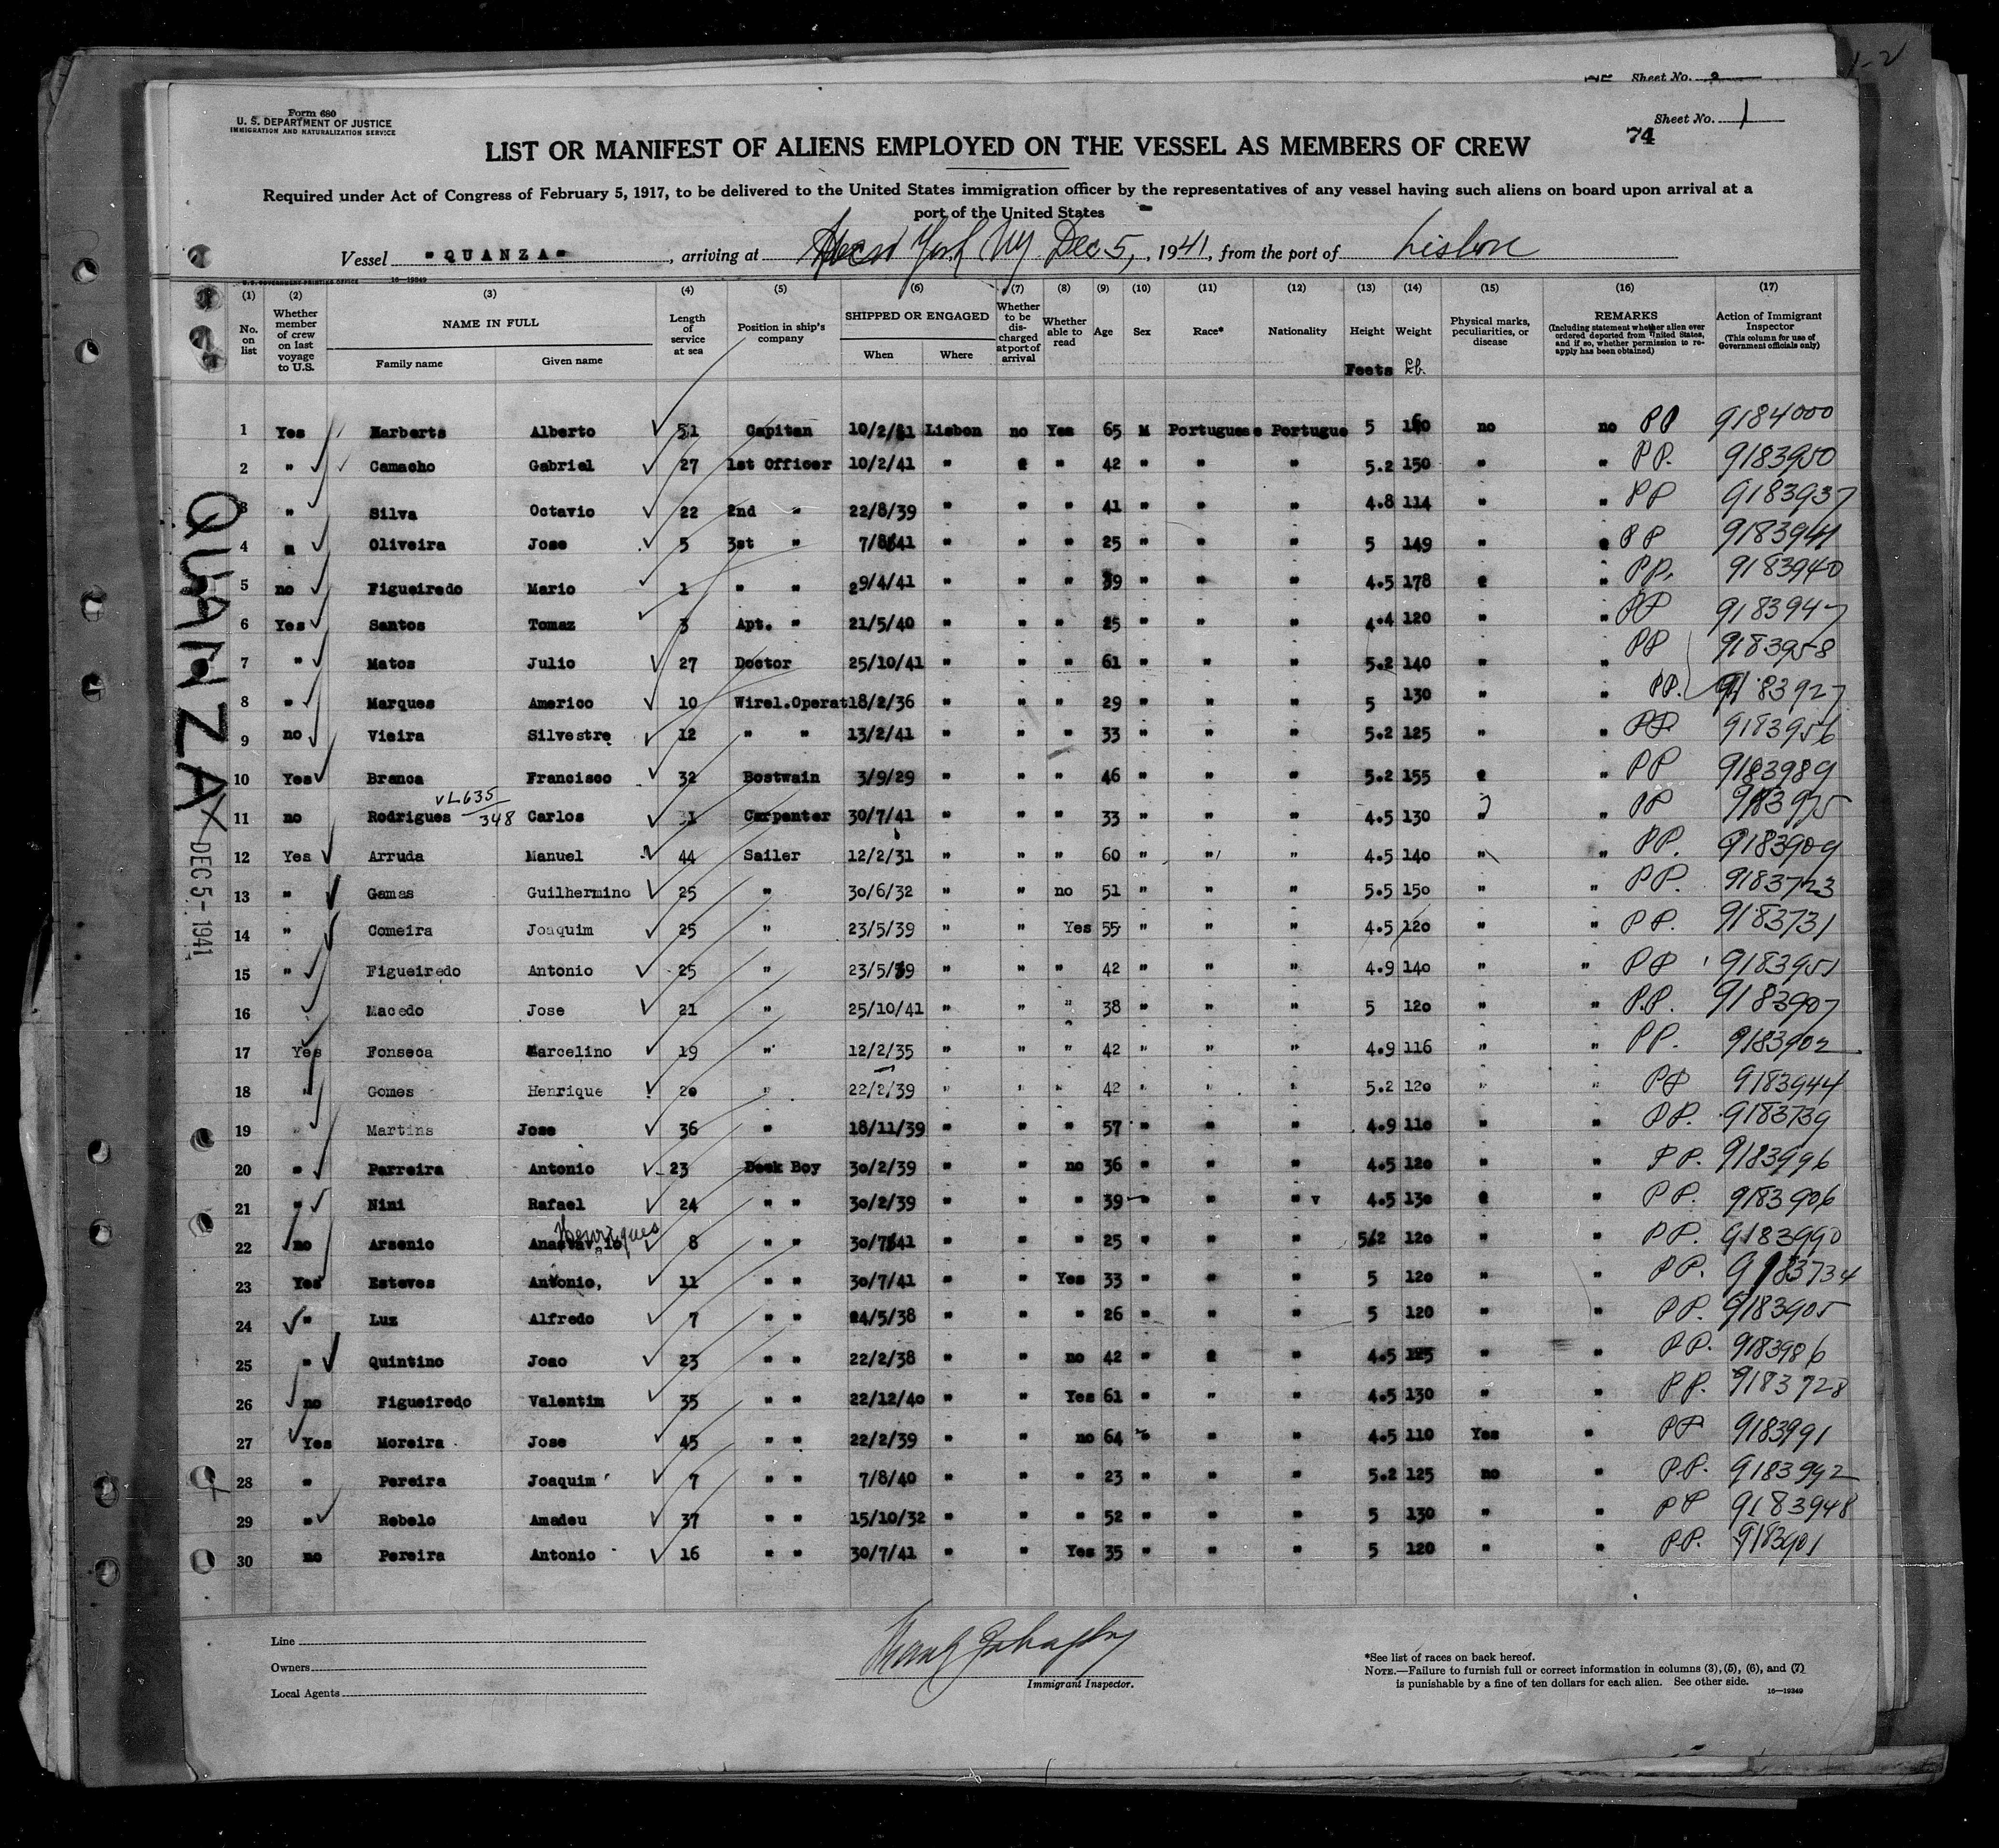 Sheet No. 2
1-2
Form 680
U. S. DEPARTMENT OF JUSTICE
IMMIGRATION AND NATURALIZATION SERVICE
Sheet No. 1
74
LIST OR MANIFEST OF ALIENS EMPLOYED ON THE VESSEL AS MEMBERS OF CREW
Required under Act of Congress of February 5, 1917, to be delivered to the United States immigration officer by the representatives of any vessel having such aliens on board upon arrival at a
port of the United States
Vessel "QUANZA" , arriving at New York NY Dec 5, , 1941, from the port of Lisbon
U. S. GOVERNMENT PRINTING OFFICE 16—19349
(1) (2) (3) (4) (5) (6) (7) (8) (9) (10) (11) (12) (13) (14) (15) (16) (17)
No. on list
Whether member of crew on last voyage to U.S.
NAME IN FULL
Family name Given name
Length of service at sea
Position in ship's company
SHIPPED OR ENGAGED
When Where
Whether to be discharged at port of arrival
Whether able to read
Age
Sex
Race*
Nationality
Height
Feets
Weight
Lb.
Physical marks, peculiarities, or disease
REMARKS
(Including statement whether alien ever ordered deported from United States, and if so, whether permission to reapply has been obtained)
Action of Immigrant Inspector
(This column for use of Government officials only)
1 Yes Harberts Alberto 51 Capitan 10/2/41 Lisbon no Yes 65 M Portuguese Portugue 5 160 no no PP 9184000
2 " Camacho Gabriel 27 1st Officer 10/2/41 " " " 42 " " " 5.2 150 " " PP. 9183950
3 " Silva Octavio 22 2nd " 22/8/39 " " " 41 " " " 4.8 114 " " PP 9183937
4 " Oliveira Jose 5 3st " 7/8/41 " " " 25 " " " 5 149 " " PP 9183941
5 no Figueiredo Mario 1 " " 29/4/41 " " " 39 " " " 4.5 178 " " PP. 9183940
6 Yes Santos Tomaz 3 Apt. " 21/5/40 " " " 25 " " " 4.4 120 " " PP 9183947
7 " Matos Julio 27 Doctor 25/10/41 " " " 61 " " " 5.2 140 " " PP 9183958
8 " Marques Americo 10 Wirel.Operat 18/2/36 " " " 29 " " " 5 130 " " PP. 9183927
9 no Vieira Silvestre 12 " " 13/2/41 " " " 33 " " " 5.2 125 " " PP 9183956
10 Yes Branca Francisco 32 Bostwain 3/9/29 " " " 46 " " " 5.2 155 " " PP 9183989
vL635/348
11 no Rodrigues Carlos 31 Carpenter 30/7/41 " " " 33 " " " 4.5 130 " " PP 9183975
12 Yes Arruda Manuel 44 Sailer 12/2/31 " " " 60 " " " 4.5 140 " " PP. 9183909
13 " Gamas Guilhermino 25 " 30/6/32 " " no 51 " " " 5.5 150 " " PP. 9183723
14 " Comeira Joaquim 25 " 23/5/39 " " Yes 55 " " " 4.5 120 " " PP. 9183731
15 " Figueiredo Antonio 25 " 23/5/39 " " " 42 " " " 4.9 140 " " PP 9183951
16 Macedo Jose 21 " 25/10/41 " " " 38 " " " 5 120 " " P.P. 9183907
17 Yes Fonseca Marcelino 19 " 12/2/35 " " " 42 " " " 4.9 116 " " PP. 9183902
18 " Gomes Henrique 20 " 22/2/39 " " " 42 " " " 5.2 120 " " PP 9183944
19 " Martins Jose 36 " 18/11/39 " " " 57 " " " 4.9 110 " " PP. 9183739
20 " Parreira Antonio 23 Deek Boy 30/2/39 " " no 36 " " " 4.5 120 " " PP. 9183996
21 " Nini Rafael 24 " " 30/2/39 " " " 39 " " " 4.5 130 " " PP. 9183906
22 no Arsenio Henriques 8 " " 30/7/41 " " " 25 " " " 5.2 120 " " PP. 9183990
23 Yes Esteves Antonio, 11 " " 30/7/41 " " Yes 33 " " " 5 120 " " PP. 9183734
24 " Luz Alfredo 7 " " 24/5/38 " " " 26 " " " 5 120 " " PP. 9183905
25 " Quintino Joao 23 " " 22/2/38 " " no 42 " " " 4.5 125 " " PP. 9183986
26 no Figueiredo Valentim 35 " " 22/12/40 " " Yes 61 " " " 4.5 130 " " PP. 9183728
27 Yes Moreira Jose 45 " " 22/2/39 " " no 64 " " " 4.5 110 Yes " PP 9183991
28 " Pereira Joaquim 7 " " 7/8/40 " " " 23 " " " 5.2 125 no " PP. 9183992
29 " Rebelo Amadeu 37 " " 15/10/32 " " " 52 " " " 5 130 " " PP 9183948
30 no Pereira Antonio 16 " " 30/7/41 " " Yes 35 " " " 5 120 " " PP. 9183901
QUANZA
DEC 5- 1941
Line
Owners
Local Agents
Immigrant Inspector.
*See list of races on back hereof.
NOTE.—Failure to furnish full or correct information in columns (3), (5), (6), and (7)
is punishable by a fine of ten dollars for each alien. See other side.
16—19349